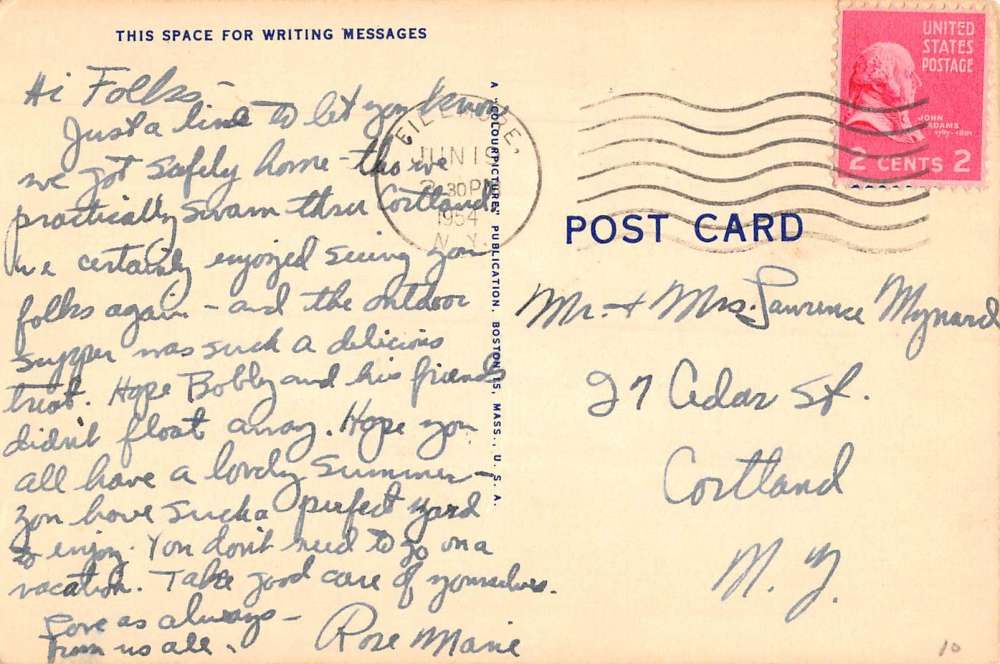 THIS SPACE FOR WRITING MESSAGES
Hi Folks -
Just a line to let you know
we got safely home - tho we
practically swam thru Cortland.
We certainly enjoyed seeing you
folks again - and the outdoor
supper was such a delicious
treat. Hope Bobby and his friends
didn't float away. Hope you
all have a lovely summer -
you have such a perfect yard
to enjoy. You don't need to go on a
vacation. Take good care of yourselves.
Love as always -
from us all.
Rose Marie
A "COLOURPICTURE" PUBLICATION, BOSTON 15, MASS., U. S. A.
JUN 19
30 PM
1954
N. Y.
UNITED
STATES
POSTAGE
JOHN
ADAMS
1797-1801
2 CENTS 2
POST CARD
Mr. + Mrs. Lawrence Mynard
27 Cedar St.
Cortland
N. Y.
10